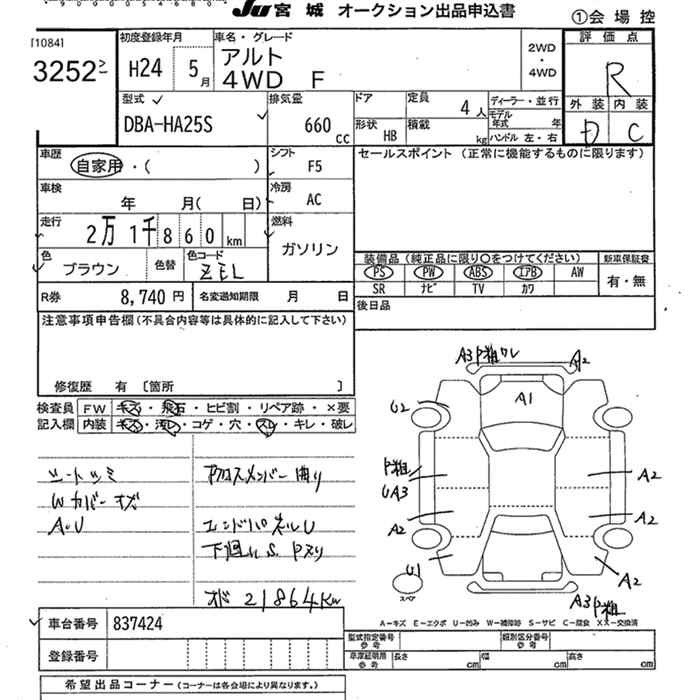 JU 宮城 オークション出品申込書 ①会場控
[1084]
3252
初度登録年月 H24 5月
車名・グレード アルト 4WD F
2WD・4WD
評価点 R
外装 内装
D C
型式 DBA-HA25S
排気量 660 cc
ドア 定員 4人
形状 HB 積載 kg
ディーラー・並行
モデル年式 年
ハンドル 左・右
車歴 自家用・( )
シフト F5
セールスポイント (正常に機能するものに限ります)
車検 年 月( 日)
冷房 AC
走行 2万1千860km
燃料 ガソリン
色 ブラウン 色替 色コード ZEL
装備品 (純正品に限り○をつけてください) 新車保証書
PS PW ABS エアB AW 有・無
SR ナビ TV カワ
R券 8,740円 名変通知期限 月 日
後日品
注意事項申告欄 (不具合内容等は具体的に記入して下さい)
修復歴 有 〔箇所 〕
検査員記入欄
FW キズ・飛石・ヒビ割・リペア跡・×要
内装 キズ・汚レ・コゲ・穴・スレ・キレ・破レ
シートシミ
Wカバーキズ
A・U
クロスメンバー曲り
エンドパネルU
下廻りS
21864Km
A3 P粗 ワレ
A2
A1
U2
P粗
UA3
A2
A2
A2
U1
A2
A3 P粗
スペア
A-キズ E-エクボ U-凹み W-補修跡 S-サビ C-腐食 XX-交換済
車台番号 837424
登録番号
型式指定番号 参考
類別区分番号 参考
車庫証明用 参考 長さ cm 幅 cm 高さ cm
希望出品コーナー (コーナーは各会場により異なります。)